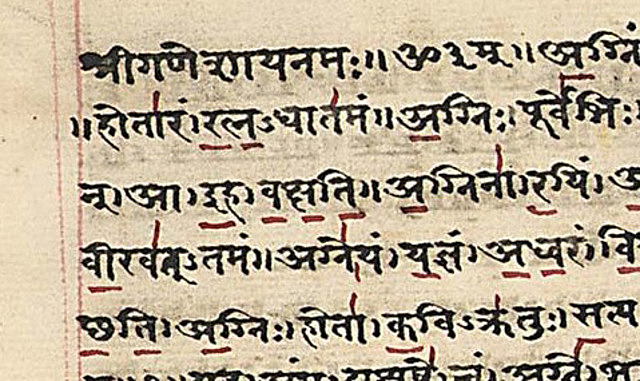 श्रीगणेशाय नमः॥ओ३म्॥अग्निं
॥होतारं।रत्नऽधातमं॥अग्निः।पूर्वेभिः
न्।आ।इह।वक्षति॥अग्निना।रयिं।
वीरवत्ऽतमं॥अग्ने।यं।यज्ञं।अध्वरं।वि
छति।अग्निः।होता।कविऽक्रतुः।सत्य